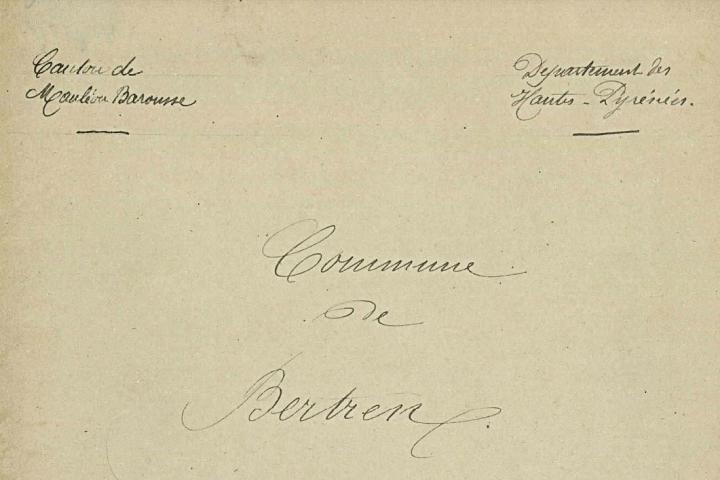 Canton de
Mauléon Barousse
Département des
Hautes-Pyrénées.
Commune
de
Bertren.